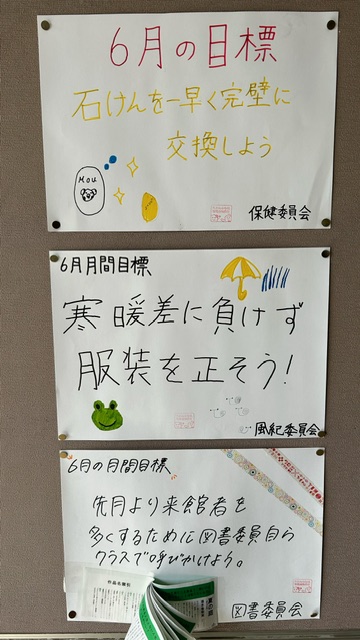 6月の目標
石けんを一早く完璧に
交換しよう
Mou
保健委員会
6月月間目標
寒暖差に負けず
服装を正そう!
風紀委員会
6月の月間目標
先月より来館者を
多くするために図書委員自ら
クラスで呼びかけよう。
作品名索引
図書委員会